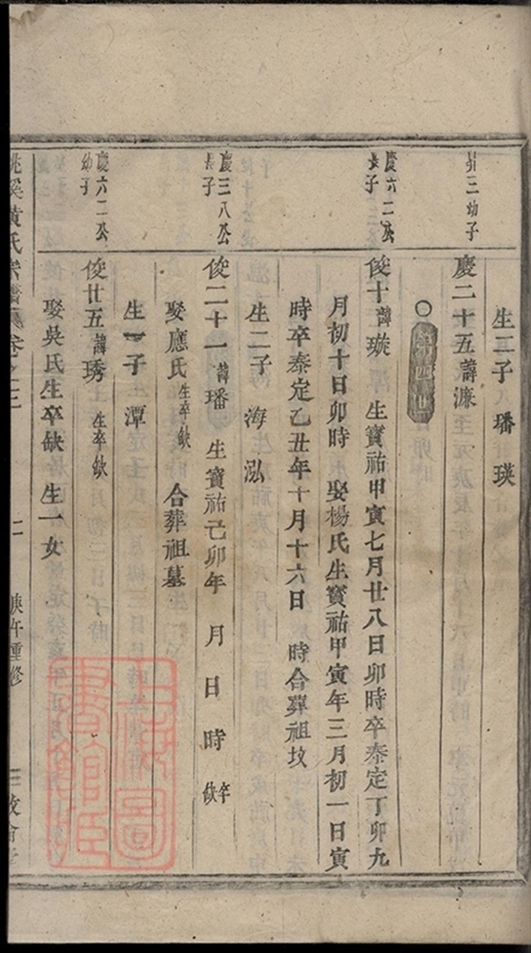 生二子 璠 瑛
昇三幼子
慶二十五諱濂
○第四世
慶六二公
長子
俊十諱璇 生寶祐甲寅七月廿八日卯時卒泰定丁卯九
月初十日卯時 娶楊氏生寶祐甲寅年三月初一日寅
時卒泰定乙丑年十月十六日 時合葬祖坟
生二子 海 泓
慶三八公
長子
俊二十一諱璠 生寶祐己卯年 月 日 時 卒缺
娶應氏生卒缺 合葬祖墓
生一子 潭
慶六二公
幼子
俊廿五諱琇 生卒缺
娶吳氏生卒缺 生一女
黃氏宗譜 卷之三 二 庚午重修 三